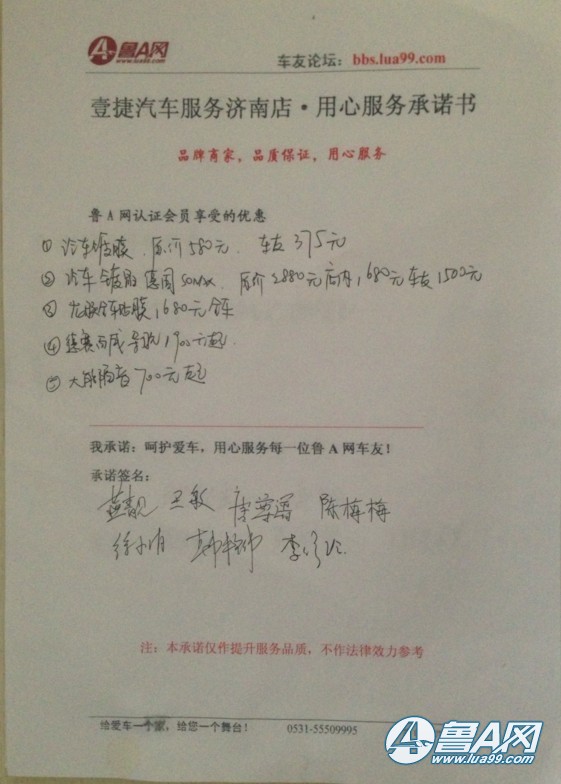 鲁A网
www.lua99.com
车友论坛：bbs.lua99.com
壹捷汽车服务济南店·用心服务承诺书
品牌商家，品质保证，用心服务
鲁A网认证会员享受的优惠
① 汽车镀膜 原价580元 车友375元
② 汽车镀晶 德国sonax 原价2880元店内1680元车友1500元
③ 全车贴膜1680元全车
④ 德赛西威导航1900元起
⑤ 大能隔音700元起
我承诺：呵护爱车，用心服务每一位鲁A网车友！
承诺签名：
王敏 陈梅梅
注：本承诺仅作提升服务品质，不作法律效力参考
给爱车一个家，给您一个舞台！ 0531-55509995
鲁A网
www.lua99.com